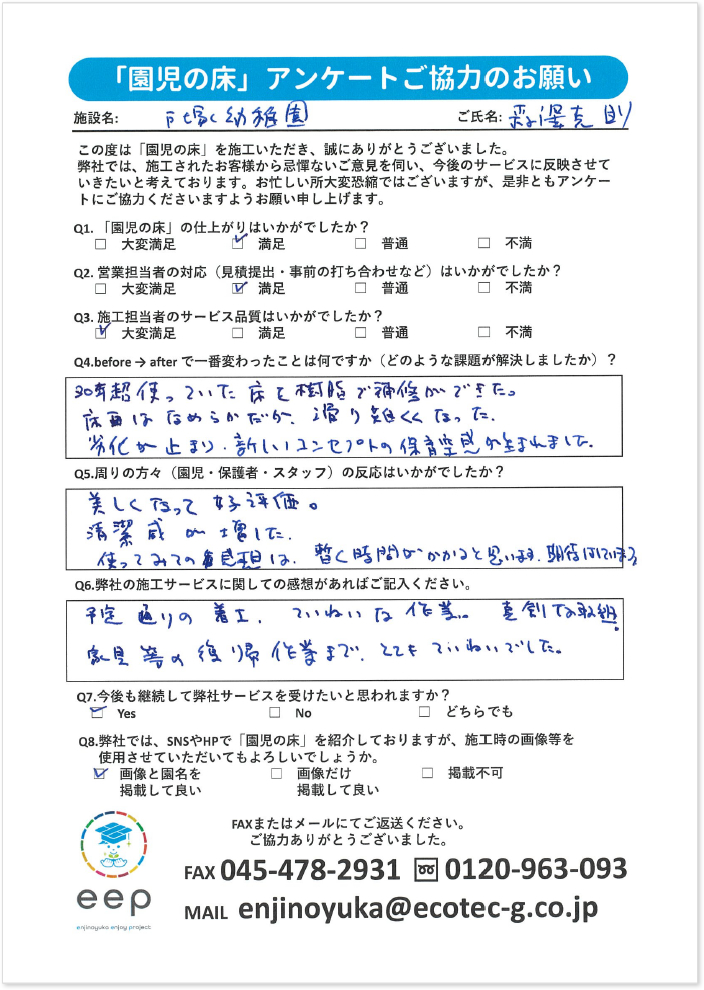 「園児の床」アンケートご協力のお願い
施設名: 戸塚幼稚園 ご氏名: 澤克則
この度は「園児の床」を施工いただき、誠にありがとうございました。
弊社では、施工されたお客様から忌憚ないご意見を伺い、今後のサービスに反映させて
いきたいと考えております。お忙しい所大変恐縮ではございますが、是非ともアンケー
トにご協力くださいますようお願い申し上げます。
Q1. 「園児の床」の仕上がりはいかがでしたか？
□ 大変満足 ☑ 満足 □ 普通 □ 不満
Q2. 営業担当者の対応（見積提出・事前の打ち合わせなど）はいかがでしたか？
□ 大変満足 ☑ 満足 □ 普通 □ 不満
Q3. 施工担当者のサービス品質はいかがでしたか？
☑ 大変満足 □ 満足 □ 普通 □ 不満
Q4.before → after で一番変わったことは何ですか（どのような課題が解決しましたか）？
30年超使っていた床を樹脂で補修ができた。
床面はなめらかだが、滑り難くくなった。
劣化が止まり、新しいコンセプトの保育空感が生まれました。
Q5.周りの方々（園児・保護者・スタッフ）の反応はいかがでしたか？
美しくなって好評価。
清潔感が増した。
使ってみての感想は、暫く時間がかかると思います。期待はしています
Q6.弊社の施工サービスに関しての感想があればご記入ください。
予定通りの着工、ていねいな作業。真剣な取組。
家具等の復帰作業まで、とてもていねいでした。
Q7.今後も継続して弊社サービスを受けたいと思われますか？
☑ Yes □ No □ どちらでも
Q8.弊社では、SNSやHPで「園児の床」を紹介しておりますが、施工時の画像等を
使用させていただいてもよろしいでしょうか。
☑ 画像と園名を □ 画像だけ □ 掲載不可
掲載して良い 掲載して良い
FAXまたはメールにてご返送ください。
ご協力ありがとうございました。
FAX 045-478-2931 0120-963-093
eep
MAIL enjinoyuka@ecotec-g.co.jp
enjinoyuka enjoy project